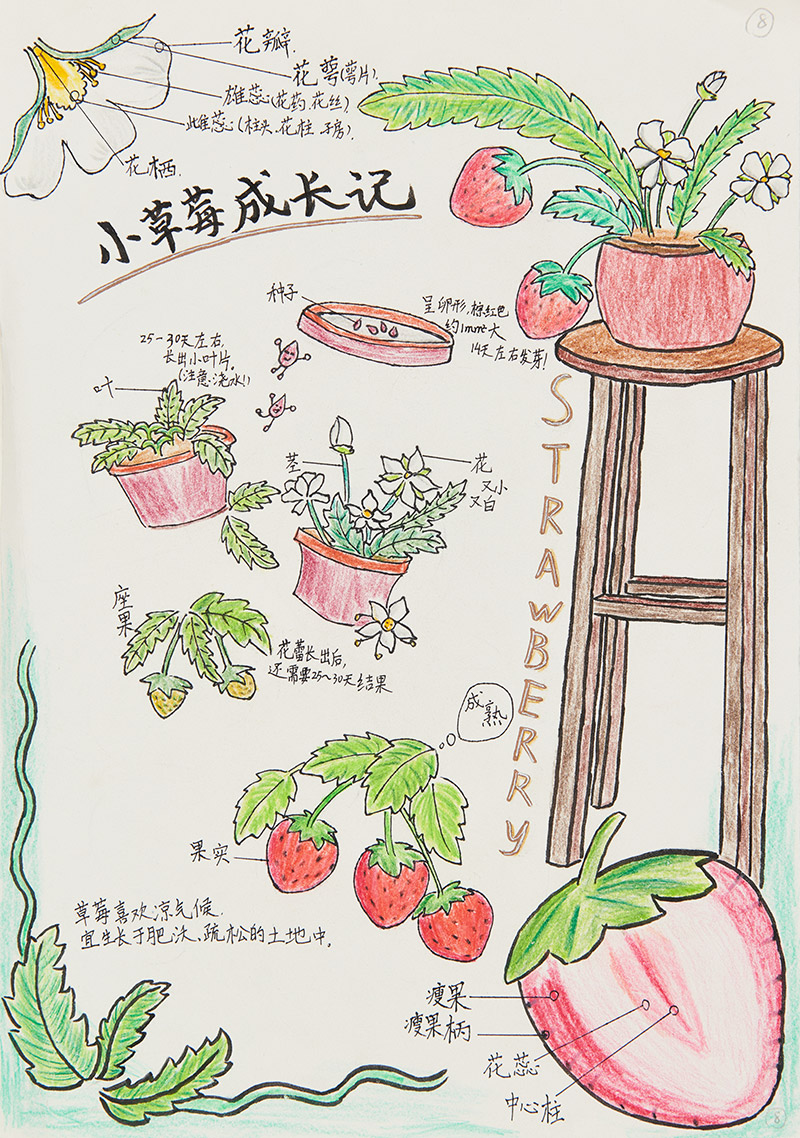 8
花瓣.
花萼(萼片).
雄蕊(花药.花丝).
雌蕊(柱头.花柱 子房).
花柄.
小草莓成长记
种子
呈卵形,棕红色
约1mm大
14天左右发芽!
25-30天左右,
长出小叶片。
(注意:浇水!)
叶
茎
花
又小
又白
STRAWBERRY
座果
花蕾长出后,
还需要25~30天结果
成熟
果实
草莓喜欢凉气候.
宜生长于肥沃、疏松的土地中.
瘦果
瘦果柄
花蕊
中心柱
8